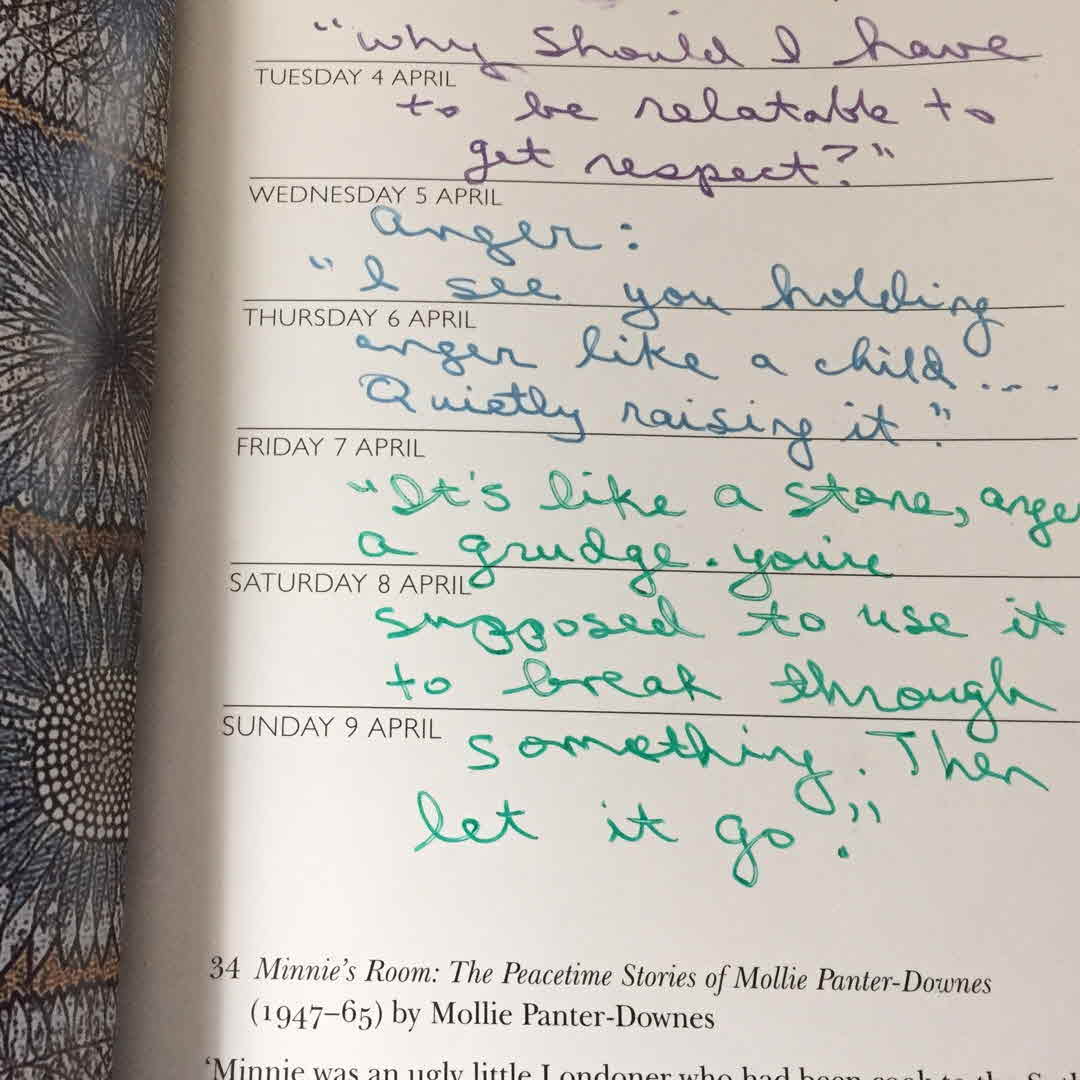 "why should I have
TUESDAY 4 APRIL
to be relatable to
get respect?"
WEDNESDAY 5 APRIL
Anger:
"I see you holding
THURSDAY 6 APRIL
anger like a child....
Quietly raising it."
FRIDAY 7 APRIL
"It's like a stone, anger
a grudge. you're
SATURDAY 8 APRIL
supposed to use it
to break through
SUNDAY 9 APRIL
something. Then
let it go."
34 Minnie's Room: The Peacetime Stories of Mollie Panter-Downes
(1947–65) by Mollie Panter-Downes
'Minnie was an ugly little Londoner who had been cook to the